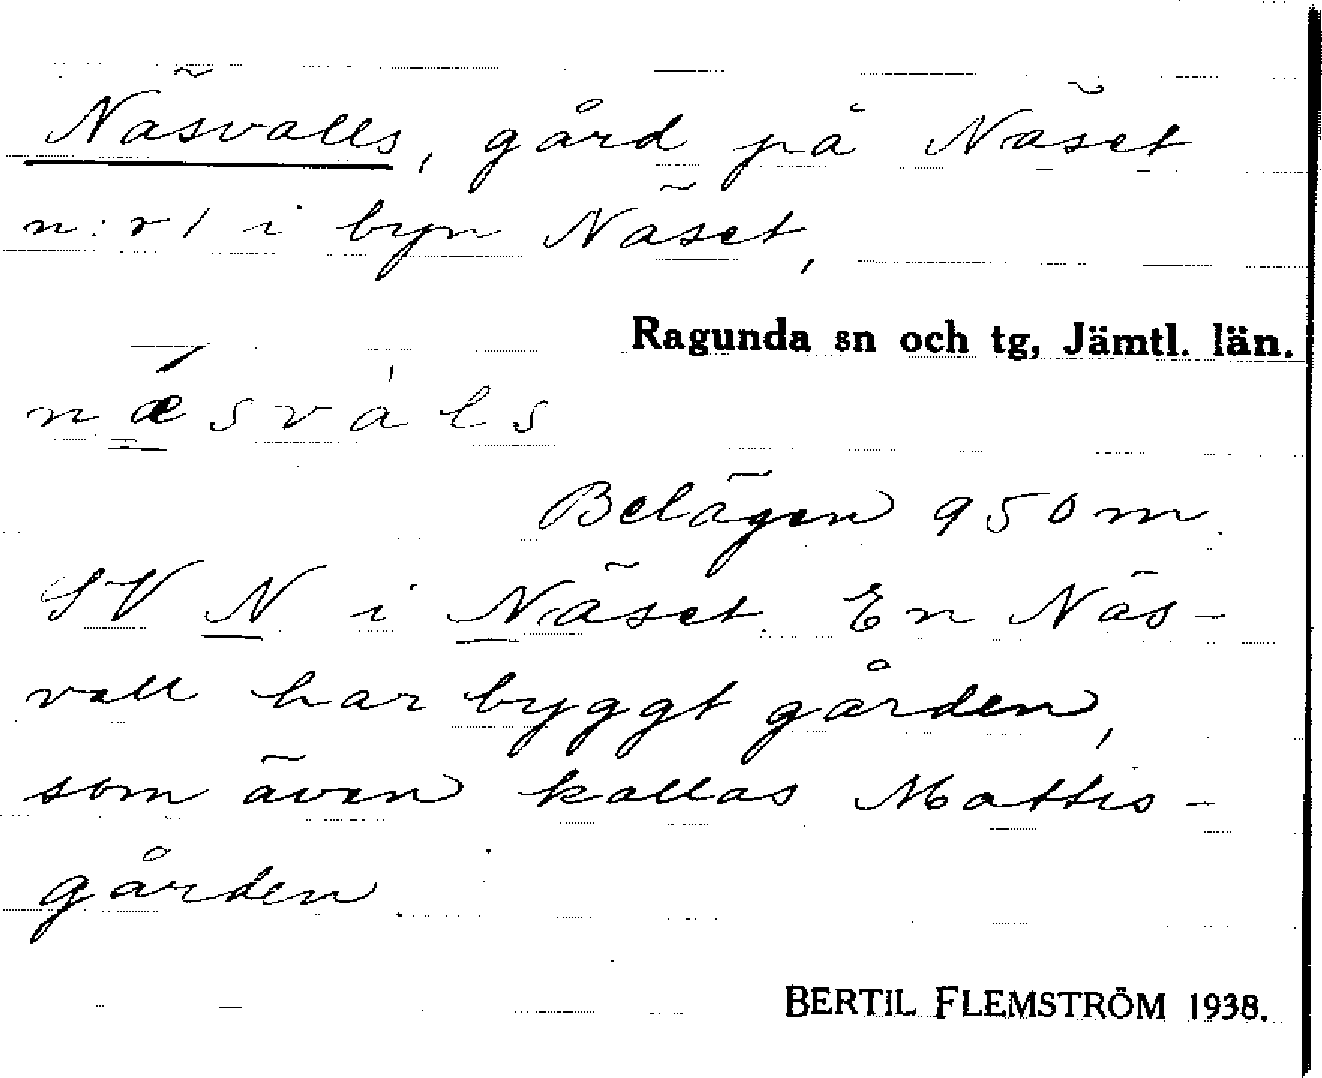 Näsvalls, gård på Näset
n:r 1 i byn Näset,
Ragunda sn och tg, Jämtl. län.
næ´svàls
Belägen 950 m
SV N i Näset. En Näs-
vall har byggt gården,
som även kallas Mattis-
gården
BERTIL FLEMSTRÖM 1938.